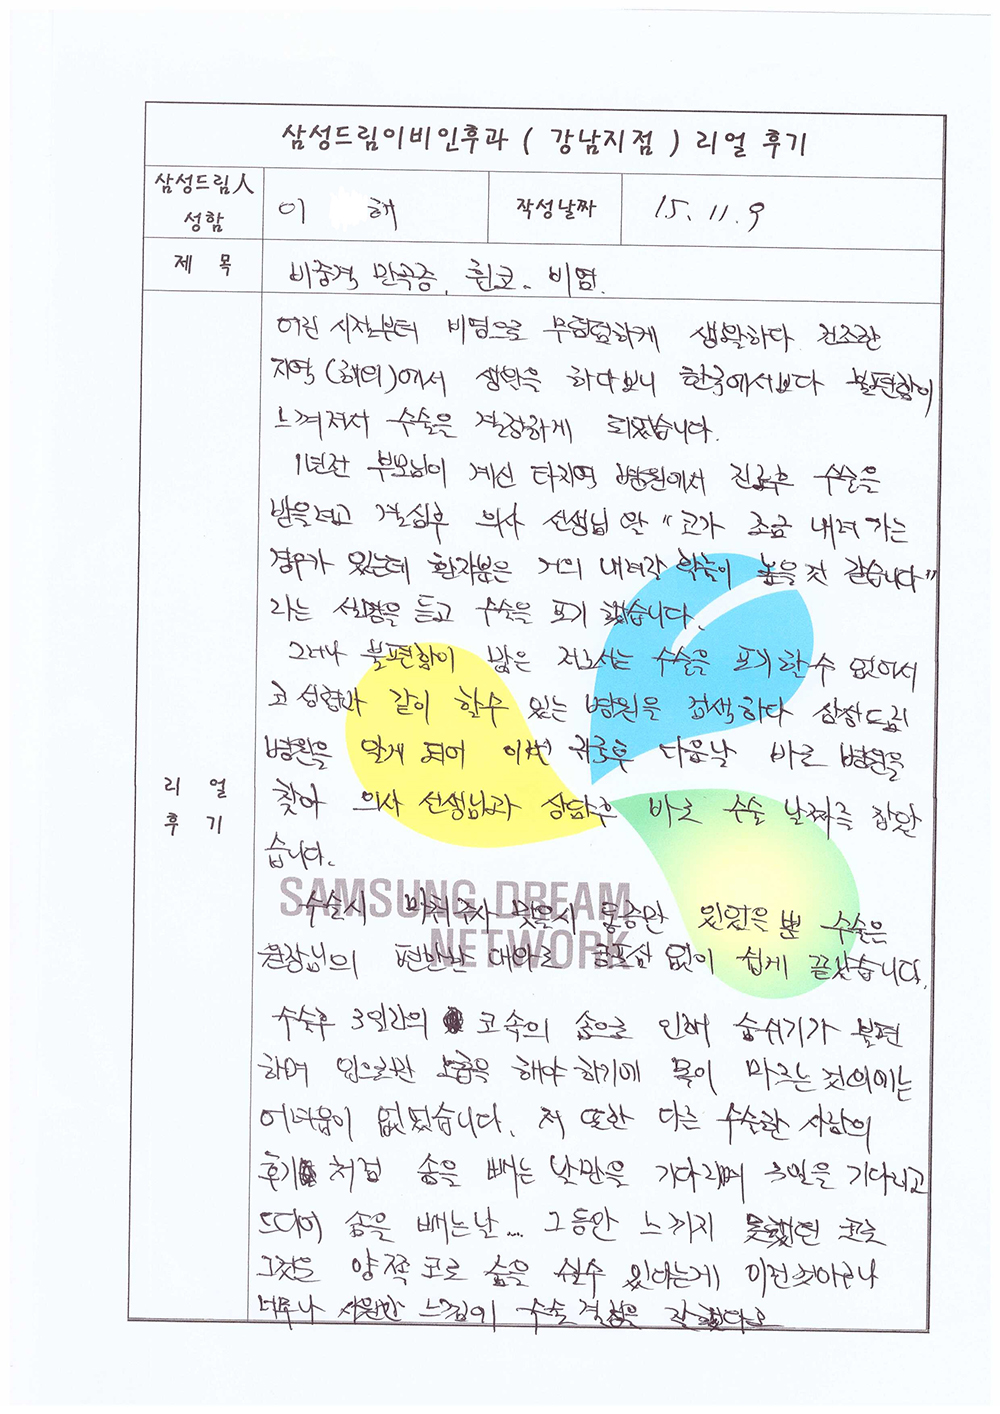 삼성드림이비인후과 ( 강남지점 ) 리얼 후기
삼성드림人 성함
이 해
작성날짜
15. 11. 9
제 목
비중격 만곡증, 휜코, 비염.
리 얼 후 기
어린 시절부터 비염으로 무덤덤하게 생활하다 건조한
지역(해외)에서 생활을 하다보니 한국에서보다 불편함이
느껴져서 수술을 결정하게 되었습니다.
1년전 부모님이 계신 타지역 병원에서 진료후 수술을
받을려고 결심후 의사 선생님 왈 "코가 조금 내려 가는
경우가 있는데 환자분은 거의 내려갈 확률이 높을것 같습니다"
라는 설명을 듣고 수술을 포기 했습니다.
그러나 불편함이 많은 저로서는 수술을 포기 할수 없어서
코 성형과 같이 할수 있는 병원을 검색하다 삼성드림
병원을 알게 되어 이번 귀국후 다음날 바로 병원을
찾아 의사 선생님과 상담후 바로 수술 날짜를 잡았
습니다.
SAMSUNG DREAM
NETWORK
수술시 마취주사 맞을시 통증만 있었을 뿐 수술은
원장님의 편안한 대화로 없이 쉽게 끝났습니다.
수술후 3일간의 코속의 솜으로 인해 숨쉬기가 불편
하며 입으로만 호흡을 해야 하기에 목이 마르는 것이외에는
어려움이 없었습니다. 저 또한 다른 수술한 사람의
후기 처럼 솜을 빼는 날만을 기다리며 3일을 기다리고
드디어 솜을 빼는날... 그동안 느끼지 못했던 코로
그것도 양쪽 코로 숨을 쉴수 있다는게 이런것이구나
너무나 시원한 느낌이 수술 결정을 잘했다고